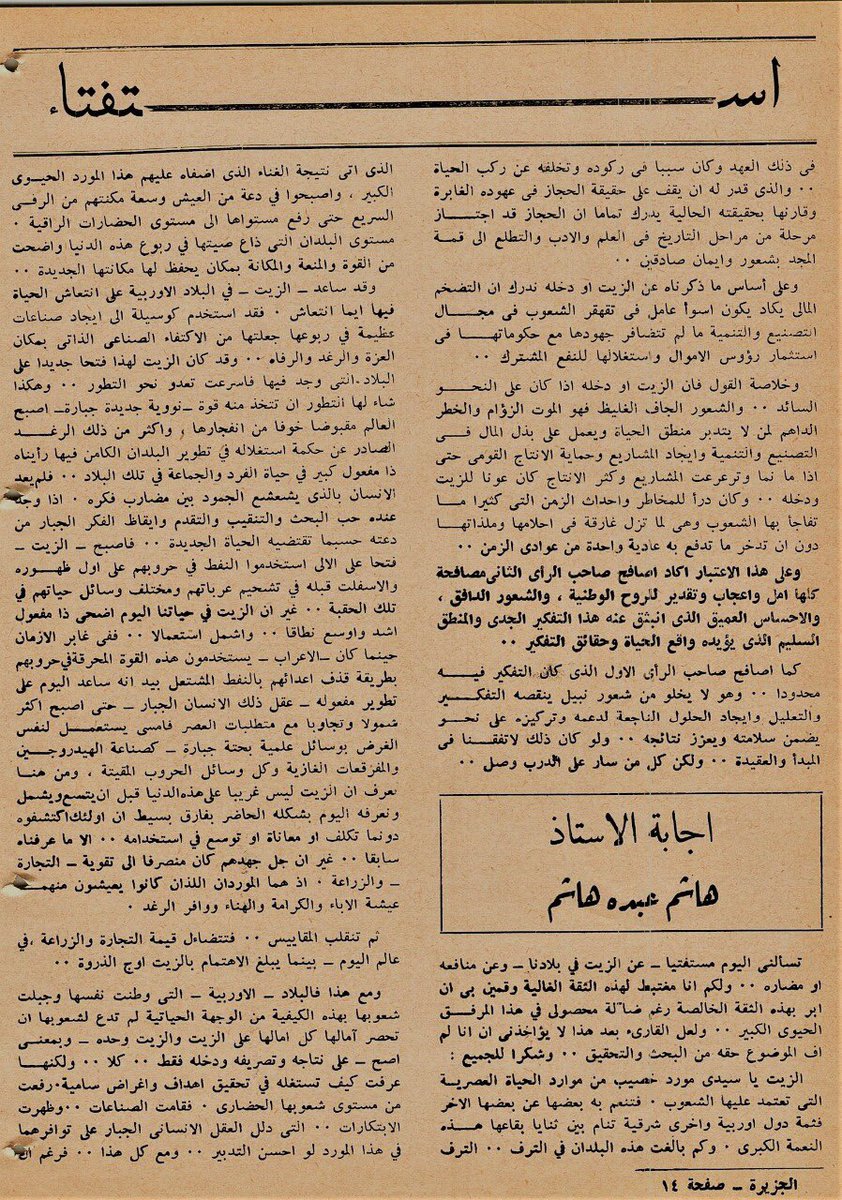 استفتاء
فى ذلك العهد وكان سببا فى ركوده وتخلفه عن ركب الحياة
٠٠ والذى قدر له ان يقف على حقيقة الحجاز فى عهوده الغابرة
وقارنها بحقيقته الحالية يدرك تماما ان الحجاز قد اجتاز
مرحلة من مراحل التاريخ فى العلم والادب والتطلع الى قمة
المجد بشعور وايمان صادقين ٠٠
وعلى أساس ما ذكرناه عن الزيت او دخله ندرك ان التضخم
المالى يكاد يكون اسوأ عامل فى تقهقر الشعوب فى مجال
التصنيع والتنمية ما لم تتضافر جهودها مع حكوماتها فى
استثمار رؤوس الاموال واستغلالها للنفع المشترك ٠٠
وخلاصة القول فان الزيت او دخله اذا كان على النحو
السائد ٠٠ والشعور الجاف الغليظ فهو الموت الزؤام والخطر
الداهم لمن لا يتدبر منطق الحياة ويعمل على بذل المال فى
التصنيع والتنمية وايجاد المشاريع وحماية الانتاج القومى حتى
اذا ما نما وترعرعت المشاريع وكثر الانتاج كان عونا للزيت
ودخله ٠٠ وكان درأ للمخاطر واحداث الزمن التى كثيرا ما
تفاجأ بها الشعوب وهى لما تزل غارقة فى احلامها وملذاتها
دون ان تدخر ما تدفع به عادية واحدة من عوادى الزمن ٠٠
وعلى هذا الاعتبار اكاد اصافح صاحب الرأى الثانى مصافحة
كلها امل واعجاب وتقدير للروح الوطنية ، والشعور الدافق ،
والاحساس العميق الذى انبثق عنه هذا التفكير الجدى والمنطق
السليم الذى يؤيده واقع الحياة وحقائق التفكير ٠٠
كما اصافح صاحب الرأى الاول الذى كان التفكير فيه
محدودا ٠٠ وهو لا يخلو من شعور نبيل ينقصه التفكير
والتعليل وايجاد الحلول الناجعة لدعمه وتركيزه على نحو
يضمن سلامته ويعزز نتائجه ٠٠ ولو كان ذلك لاتفقنا فى
المبدأ والعقيدة ٠٠ ولكن كل من سار على الدرب وصل ٠٠
اجابة الاستاذ
هاشم عبده هاشم
تسألنى اليوم مستفتيا ـ عن الزيت في بلادنا ـ وعن منافعه
او مضاره ٠٠ ولكم انا مغتبط لهذه الثقة الغالية وقمين بى ان
ابر بهذه الثقة الخالصة رغم ضآلة محصولى في هذا المرفق
الحيوى الكبير ٠٠ ولعل القارىء بعد هذا لا يؤاخذنى ان انا لم
اف الموضوع حقه من البحث والتحقيق ٠٠ وشكرا للجميع :
الزيت يا سيدى مورد خصيب من موارد الحياة العصرية
التى تعتمد عليها الشعوب ٠ فتنعم به بعضها عن بعضها الاخر
فثمة دول اوربية واخرى شرقية تنام بين ثنايا بقاعها هذه
النعمة الكبرى ٠ وكم بالغت هذه البلدان في الترف ٠٠ الترف
الذى اتى نتيجة الغناء الذى اضفاه عليهم هذا المورد الحيوى
الكبير ، واصبحوا في دعة من العيش وسعة مكنتهم من الرقى
السريع حتى رفع مستواها الى مستوى الحضارات الراقية ٠
مستوى البلدان التى ذاع صيتها في ربوع هذه الدنيا واضحت
من القوة والمنعة والمكانة بمكان يحفظ لها مكانتها الجديدة ٠٠
وقد ساعد ـ الزيت ـ في البلاد الاوربية على انتعاش الحياة
فيها ايما انتعاش ٠ فقد استخدم كوسيلة الى ايجاد صناعات
عظيمة في ربوعها جعلتها من الاكتفاء الصناعى الذاتى بمكان
العزة والرغد والرفاه ٠٠ وقد كان الزيت لهذا فتحا جديدا على
البلاد التى وجد فيها فاسرعت تعدو نحو التطور ٠٠ وهكذا
شاء لها التطور ان تتخذ منه قوة ـ نووية جديدة جبارة ـ اصبح
العالم مقبوضا خوفا من انفجارها ، واكثر من ذلك الرغد
الصادر عن حكمة استغلاله في تطوير البلدان الكامن فيها رأيناه
ذا مفعول كبير في حياة الفرد والجماعة في تلك البلاد ٠٠ فلم يعد
الانسان بالذى يشعشع الجمود بين مضارب فكره ٠ اذا وجد
عنده حب البحث والتنقيب والتقدم وايقاظ الفكر الجبار من
دعته حسبما تقتضيه الحياة الجديدة ٠٠ فاصبح ـ الزيت ـ
فتحا على الالى استخدموا النفط في حروبهم على اول ظهوره
والاسفلت قبله في تشحيم عرباتهم ومختلف وسائل حياتهم في
تلك الحقبة ٠٠ غير ان الزيت في حياتنا اليوم اضحى ذا مفعول
اشد واوسع نطاقا ٠٠ واشمل استعمالا ٠٠ ففى غابر الازمان
حينما كان ـ الاعراب ـ يستخدمون هذه القوة المحرقة في حروبهم
بطريقة قذف اعدائهم بالنفط المشتعل بيد انه ساعد اليوم على
تطوير مفعوله ـ عقل ذلك الانسان الجبار ـ حتى اصبح اكثر
شمولا وتجاوبا مع متطلبات العصر فامسى يستعمل لنفس
الغرض بوسائل علمية بحتة جبارة ـ كصناعة الهيدروجين
والمفرقعات الغازية وكل وسائل الحروب المقيتة ، ومن هنا
نعرف ان الزيت ليس غريبا على هذه الدنيا قبل ان يتسع ويشمل
ونعرفه اليوم بشكله الحاضر بفارق بسيط ان اولئك اكتشفوه
دونما تكلف او معاناة او توسع في استخدامه ٠٠ الا ما عرفناه
سابقا ٠٠ غير ان جل جهدهم كان منصرفا الى تقوية ـ التجارة
ـ والزراعة ٠ اذ هما الموردان اللذان كانوا يعيشون منهما
عيشة الاباء والكرامة والهناء ووافر الرغد ٠
ثم تنقلب المقاييس ٠٠ فتتضاءل قيمة التجارة والزراعة ، في
عالم اليوم ـ بينما يبلغ الاهتمام بالزيت اوج الذروة ٠٠
ومع هذا فالبلاد ـ الاوربية ـ التى وطنت نفسها وجبلت
شعوبها بهذه الكيفية من الوجهة الحياتية لم تدع لشعوبها ان
تحصر آمالها كل امالها على الزيت والزيت وحده ـ وبمعنى
اصح ـ على نتاجه وتصريفه ودخله فقط ٠٠ كلا ٠٠ ولكنها
عرفت كيف تستغله في تحقيق اهداف واغراض سامية ٠ رفعت
من مستوى شعوبها الحضارى ٠ فقامت الصناعات ٠٠ وظهرت
الابتكارات ٠٠ التى دلل العقل الانسانى الجبار على توافرهما
في هذا المورد لو احسن التدبير ٠٠ ومع كل هذا ٠٠ فرغم ان
الجزيرة ـ صفحة ١٤